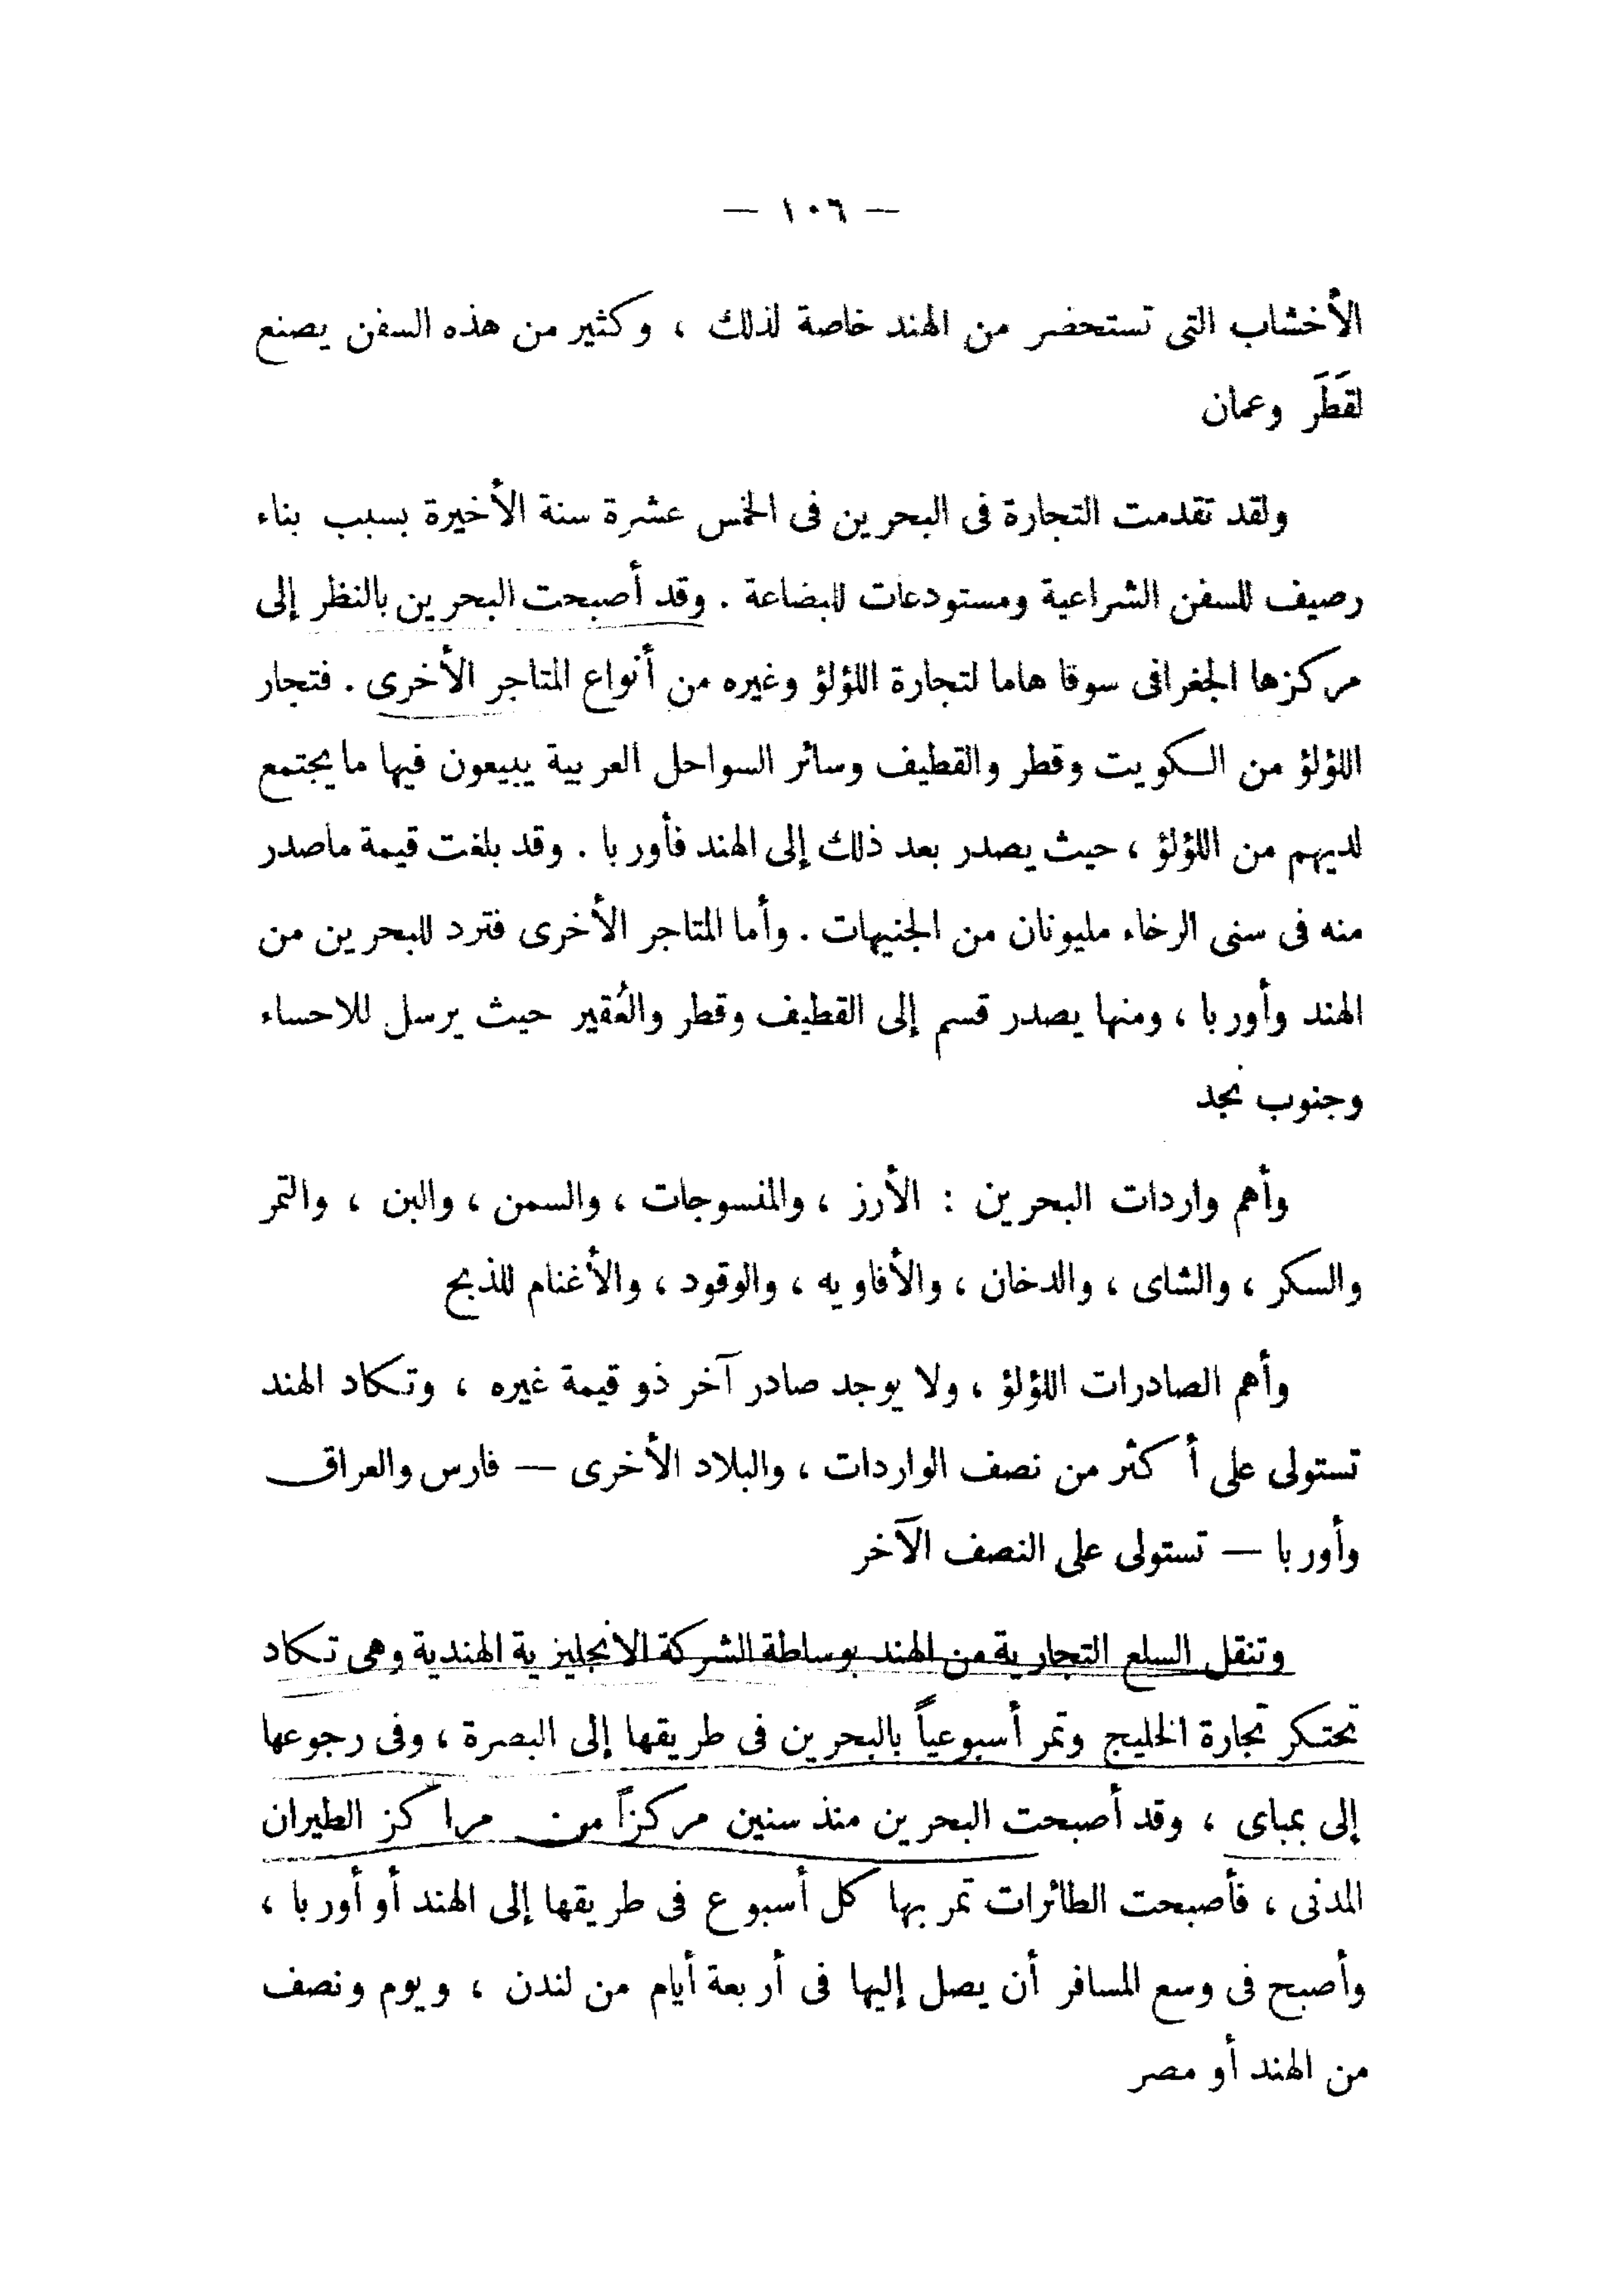 — ١٠٦ —
الأخشاب التى تستحضر من الهند خاصة لذلك ، وكثير من هذه السفن يصنع
لقَطَر وعمان
ولقد تقدمت التجارة فى البحرين فى الخمس عشرة سنة الأخيرة بسبب بناء
رصيف للسفن الشراعية ومستودعات للبضاعة . وقد أصبحت البحرين بالنظر إلى
مركزها الجغرافى سوقا هاما لتجارة اللؤلؤ وغيره من أنواع المتاجر الأخرى . فتجار
اللؤلؤ من الكويت وقطر والقطيف وسائر السواحل العربية يبيعون فيها ما يجتمع
لديهم من اللؤلؤ ، حيث يصدر بعد ذلك إلى الهند فأوربا . وقد بلغت قيمة ماصدر
منه فى سنى الرخاء مليونان من الجنيهات . وأما المتاجر الأخرى فترد للبحرين من
الهند وأوربا ، ومنها يصدر قسم إلى القطيف وقطر والعُقير حيث يرسل للاحساء
وجنوب نجد
وأهم واردات البحرين : الأرز ، والمنسوجات ، والسمن ، والبن ، والتمر
والسكر ، والشاى ، والدخان ، والأفاويه ، والوقود ، والأغنام للذبح
وأهم الصادرات اللؤلؤ ، ولا يوجد صادر آخر ذو قيمة غيره ، وتكاد الهند
تستولى على أكثر من نصف الواردات ، والبلاد الأخرى — فارس والعراق
وأوربا — تستولى على النصف الآخر
وتنقل السلع التجارية من الهند بوساطة الشركة الانجليزية الهندية وهى تكاد
تحتكر تجارة الخليج وتمر أسبوعياً بالبحرين فى طريقها إلى البصرة ، وفى رجوعها
إلى بمباى ، وقد أصبحت البحرين منذ سنين مركزاً من مراكز الطيران
المدنى ، فأصبحت الطائرات تمر بها كل أسبوع فى طريقها إلى الهند أو أوربا ،
وأصبح فى وسع المسافر أن يصل إليها فى أربعة أيام من لندن ، ويوم ونصف
من الهند أو مصر